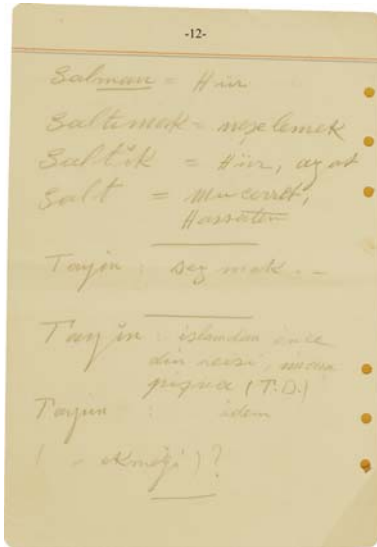 -12-
Salman = Hür
Saltımak = neşelemek
Saltık = Hür, azat
Salt = Mücerret,
Tayin : sezmek . -
Tayin : islamdan önce
din reisi, imam
(T.D.)
Tayin : idem
( - ekmeği ) ?